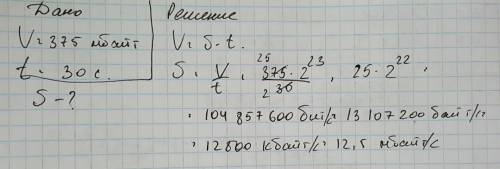 Дано
V = 375 мбайт
t = 30 с.
S - ?
Решение
V = S · t.
S = V/t = 375 · 2^23 / 30 = 25 · 2^22 =
25
2
= 104 857 600 бит/с = 13 107 200 байт/с =
= 12800 кбайт/с = 12,5 мбайт/с